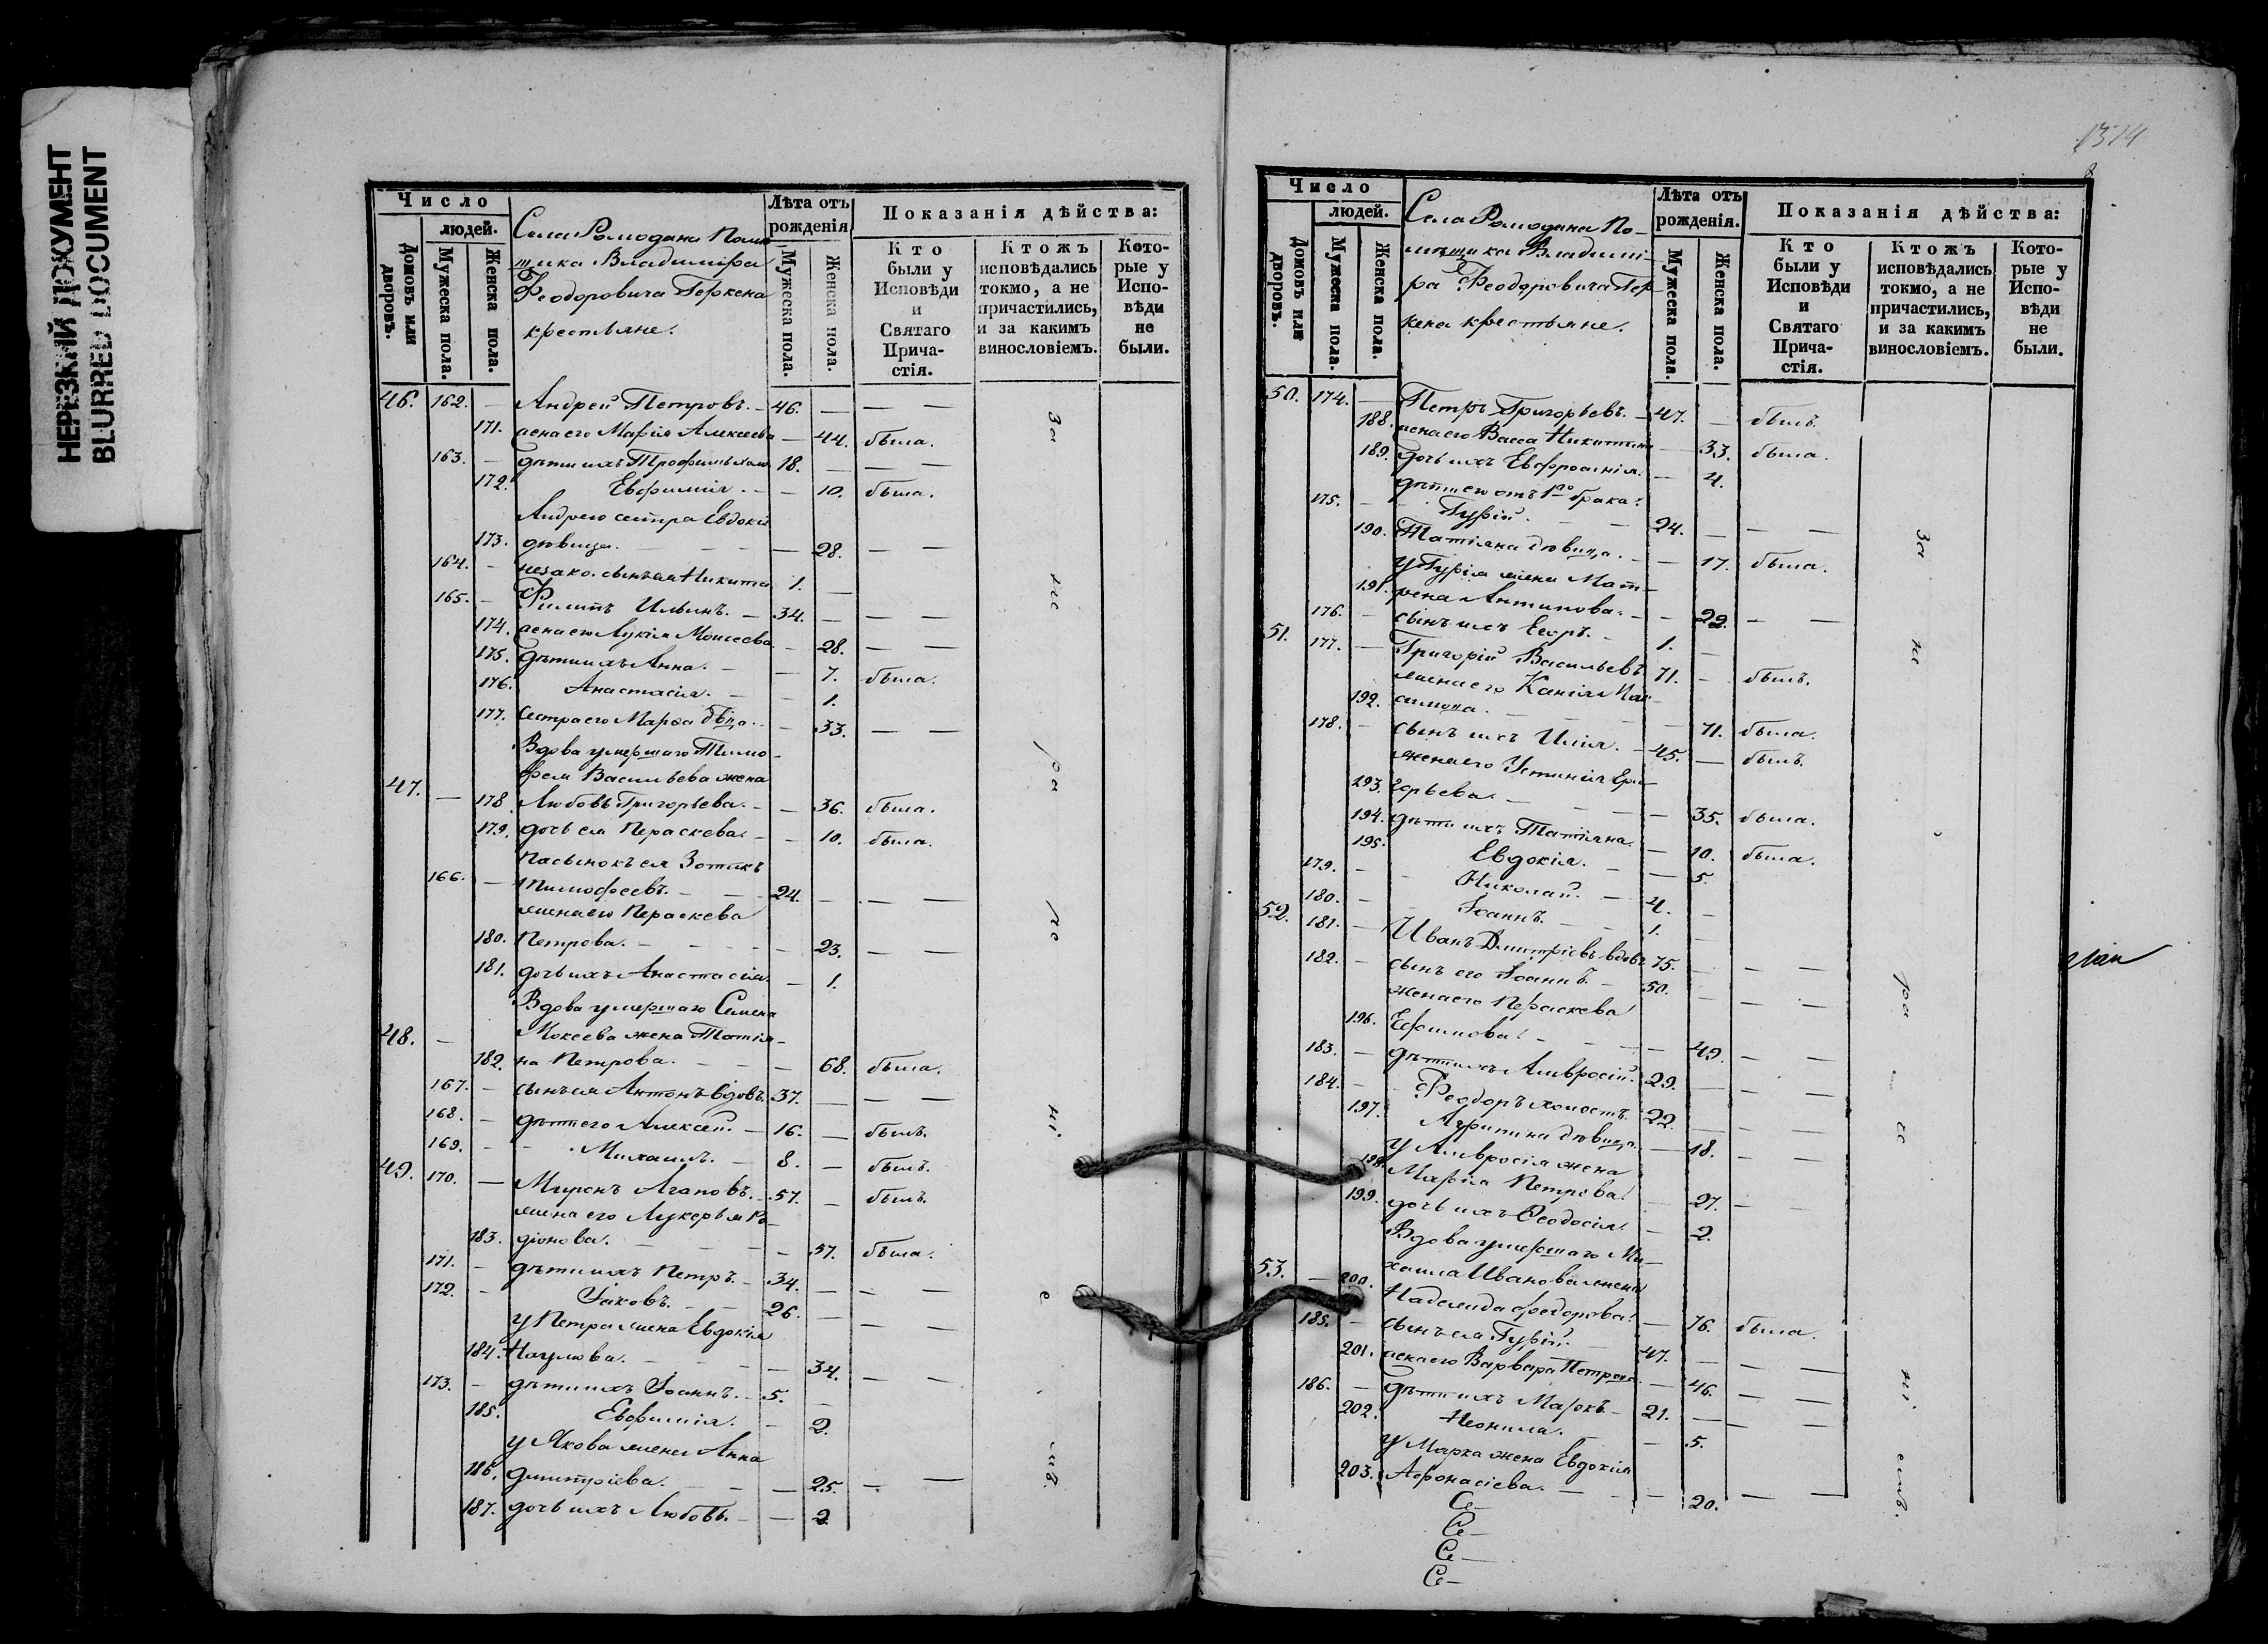 НЕРЕЗКИЙ ДОКУМЕНТ
BLURRED DOCUMENT
Число
людей.
Домовъ или дворовъ.
Мужеска пола.
Женска пола.
Села Ромодана Поме-
щика Владимира
Феодоровича Геркена
крестьяне.
Лѣта отъ рожденія
Мужеска пола.
Женска пола.
Показанія дѣйства:
Кто были у Исповѣди и Святаго Прича- стія.
Ктожъ исповѣдались токмо, а не причастились, и за какимъ винословіемъ.
Кото- рые у Испо- вѣди не были.
46. 162. — Андрей Петровъ. — 46. — — —
171. жена его Марія Алексеева — 44. была.
163. — дѣти ихъ Трофимъ холо. 18. — — —
172. Евфимія. — — 10. была.
Андрею сестра Евдокія
173. дѣвица. — — — 28. — —
164. — незако. сынъ ея Никита 1. —
165. — Филиппъ Ильинъ. — 34. — — —
174. жена его Лукія Моисеева — 28. — —
175. дѣти ихъ Анна. — — 7. была.
176. Анастасія. — — 1.
177. Сестра его Марѳа дѣвица. — 33. — —
Вдова умершаго Тимо-
фея Васильева жена
47. — 178 Любовь Григорьева. — — 36. была.
179. дочь ея Параскева. — — 10. была.
Пасынокъ ея Зотикъ
166. — Тимофеевъ. — — 24. — — —
жена его Параскева
180. Петрова. — — — 23. — —
181. дочь ихъ Анастасія. — 1.
Вдова умершаго Семена
48. — Мокеева жена Татія-
182. на Петрова. — — — 68. была.
167. — сынъ ея Антонъ вдовъ. 37. — — —
168. — дѣти его Алексей. — 16. — былъ.
169. — — Михаилъ. — 8. — былъ.
49. 170. — Миронъ Агаповъ. — 57. — былъ.
жена его Лукерья Ро-
183. діонова. — — — 57. была.
171. — дѣти ихъ Петръ. — 34. — — —
172. — Іаковъ. — — 26. — — —
у Петра жена Евдокія
184. Наумова. — — — 34. — —
173. — дѣти ихъ Іоаннъ. — 5. —
185. Евфимія. — — 2.
у Якова жена Анна
186. Димитріева. — — — 25. — —
187. дочь ихъ Любовь. — — 2.
За не ра че ні е мъ.
1314
8
Число
людей.
Домовъ или дворовъ.
Мужеска пола.
Женска пола.
Села Ромодана По-
мѣщика Владими-
ра Феодоровича Гер-
кена крестьяне.
Лѣта отъ рожденія.
Мужеска пола.
Женска пола.
Показанія дѣйства:
Кто были у Исповѣди и Святаго Прича- стія.
Ктожъ исповѣдались токмо, а не причастились, и за какимъ винословіемъ.
Кото- рые у Испо- вѣди не были.
50. 174. — Петръ Григорьевъ. — 47. — былъ.
188. жена его Васса Никитина — 33. была.
189. дочь ихъ Евфросинія. — 4.
дѣти его отъ 1го брака:
175. — Гурій. — — 24. — — —
190. Татіяна дѣвица. — — 17. была.
у Гурія жена Мат-
191. рена Антипова. — — 22. — —
176. — сынъ ихъ Егоръ. — 1. —
51. 177. — Григорій Васильевъ 71. — былъ.
192. 71. была.
178. — сынъ ихъ Илія. — 45. — былъ.
жена его Устинія Гри-
193. горьева. — — — 35. была.
194. дѣти ихъ Татіяна. — 10. была.
195. Евдокія. — — 5.
179. — — Николай. — 4. —
180. — — Іоаннъ. — — 1. —
52. 181. — Иванъ Димитріевъ вдовъ 75. — — —
182. — сынъ его Іоаннъ. — 50. — — —
жена его Параскева
196. Ефимова. — — — 49. — —
183. — дѣти ихъ Амвросій. 29. — — —
184. — Феодоръ холостъ. 22. — — —
197. дѣвица. — 18. — —
у Амвросія жена
198. Марія Петрова. — 27. — —
199. дочь ихъ Ѳеодосія. — 2.
Вдова умершаго Ми-
хаила Иванова жена
53. — 200. Надежда Федорова. — 76. была.
185. — сынъ ея Гурій. 47. — — —
201. жена его Варвара Петрова — 46. — —
186. — дѣти ихъ Маркъ. — 21. — — —
202. Неонила. — 5.
у Марка жена Евдокія
203. Афонасіева. — — — 20. — —
За не ра че ні емъ.
Се—
Се—
Се—
Се—